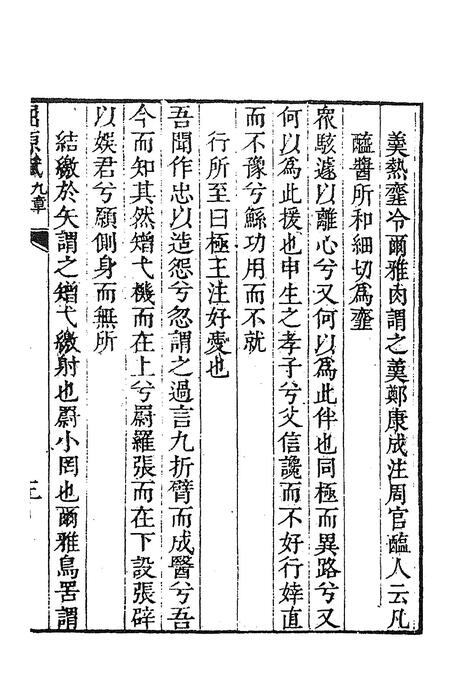 羹熱韲令爾雅肉謂之羹鄭康成注周官醢人云凡
醯醬所和細切爲韲
衆駭遽以離心兮又何以爲此伴也同極而異路兮又
何以爲此援也申生之孝子兮父信讒而不好行婞直
而不豫兮鯀功用而不就
行所至曰極王注好愛也
吾聞作忠以造怨兮忽謂之過言九折臂而成醫兮吾
今而知其然矰弋機而在上兮罻羅張而在下設張辟
以娛君兮願側身而無所
結繳於矢謂之矰弋繳射也罻小罔也爾雅鳥罟謂
屈原賦九章